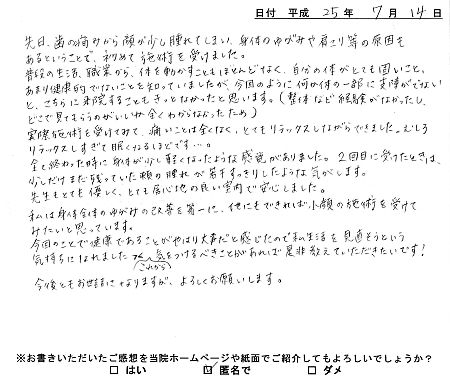 日付 平成 25年 7月 14日
先日、歯の痛みから顔が少し腫れてしまい、身体のゆがみや肩こり等の原因も
あるということで、初めて施術を受けました。
普段の生活、職業から、体を動かすことはほとんどなく、自分の体がとても固いこと、
あまり健康的でないことを知っていましたが、今回のように何か体の一部に支障がでない
と、こちらに来院することもきっとなかったと思います。(整体など経験がなかったし、
どこで見てもらうのがいいか全くわからなかったため)
実際施術を受けてみて、痛いことは全くなく、とてもリラックスしながらできました。むしろ
リラックスしすぎて眠くなるほどです…。
全て終わった時に身体が少し軽くなったような感覚がありました。2回目に受けたときは、
少しだけまだ残っていた頬の腫れが若干すっきりしたような気がします。
先生もとても優しく、とても居心地の良い空間で安心しました。
私は身体全体のゆがみの改善を第一に、他にもできれば小顔の施術を受けて
みたいと思っています。
今回のことで健康であることがやはり大事だと感じたので私生活を見直そうという
気持ちになれました。これから気をつけるべきことがあれば是非教えていただきたいです!
今後ともお世話になりますが、よろしくお願いします。
※お書きいただいたご感想を当院ホームページや紙面でご紹介してもよろしいでしょうか?
□ はい ☑ 匿名で □ ダメ